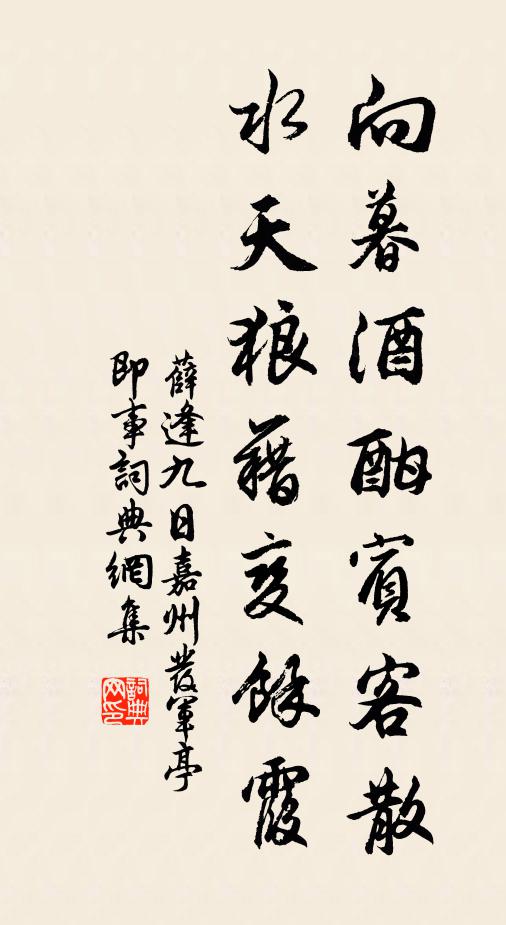 向暮酒酣賓客散
水天狼藉变餘霞
薛逢九日嘉州發軍亭
即事詞典網集
詞典网印